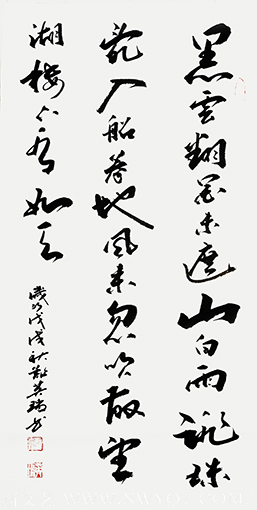 黑雲翻墨未遮山白雨跳珠
亂入船卷地風來忽吹散望
湖樓下水如天
歲次戊戌秋英瑞書